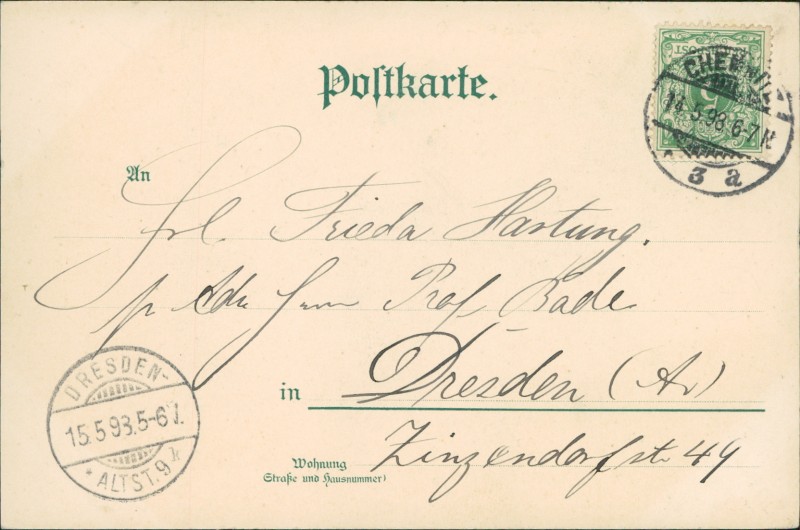 Postkarte.
CHEMNITZ
14.5.98.6-7N
3 a
An
Frl. Frieda Hartung.
p. Adr. Herrn Prof. Rade
in Dresden (A.)
Wohnung
(Straße und Hausnummer)
Zinzendorfstr. 49
DRESDEN-
15.5.98.5-6V.
* ALTST.9